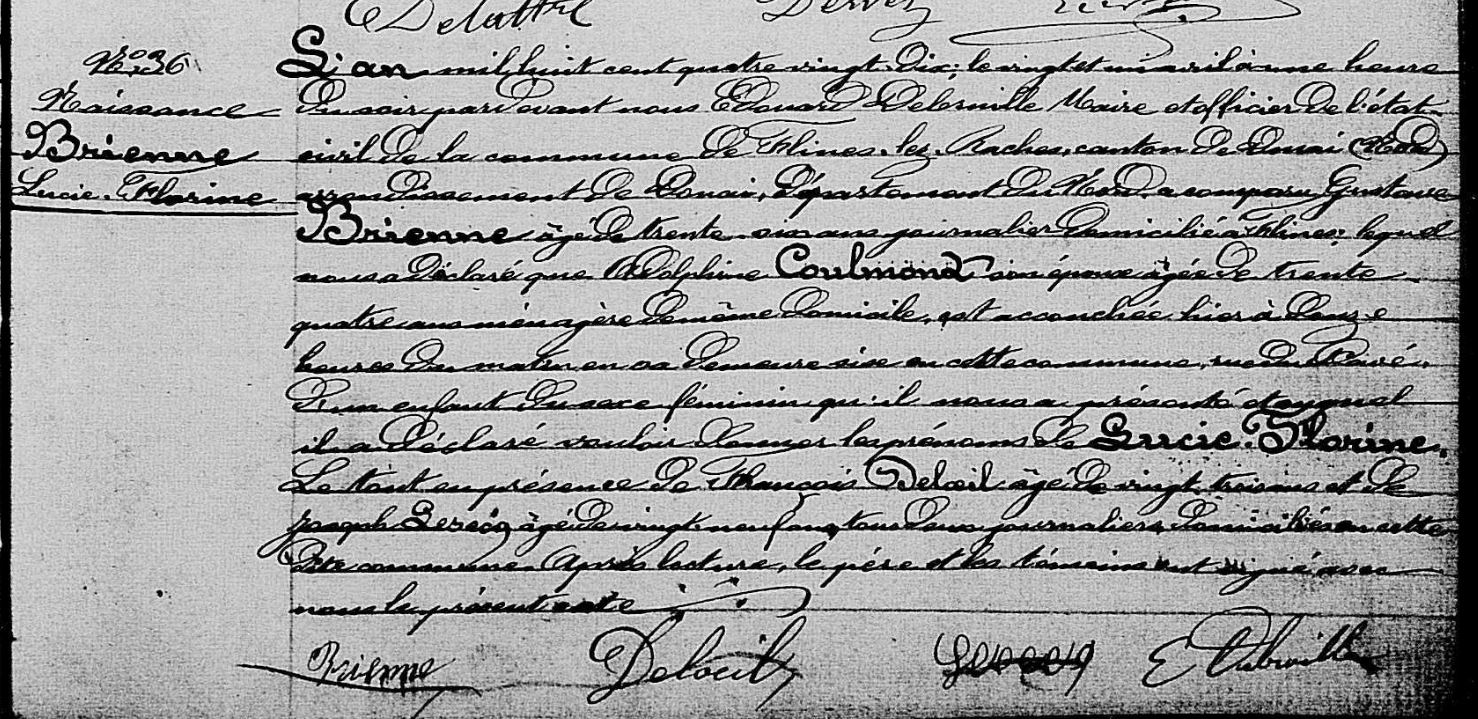 Delattre Dervez
N° 36
Naissance
Brienne
Lucie-Florine
L'an mil huit cent quatre vingt-dix, le vingt et un avril à une heure
du soir par devant nous Edouard Maire et officier de l'état
civil de la commune de Flines-lez-Raches, canton de Douai (Nord)
arrondissement de Douai, département du Nord, a comparu Gustave
Brienne âgé de trente-six ans journalier domicilié à Flines; lequel
nous a déclaré que Adolphine Coulmont son épouse âgée de trente
quatre ans ménagère de même domicile, est accouchée hier à onze
heures du matin en sa demeure sise en cette commune, rue du Pavé,
d'un enfant du sexe féminin qu'il nous a présenté et auquel
il a déclaré vouloir donner les prénoms de Lucie-Florine.
Le tout en présence de François Delœil âgé de vingt trois ans et de
Joseph âgé de vingt neuf ans, tous deux journaliers, domiciliés en cette
dite commune. Après lecture, le père et les témoins ont signé avec
nous le présent acte
Brienne Deloeil